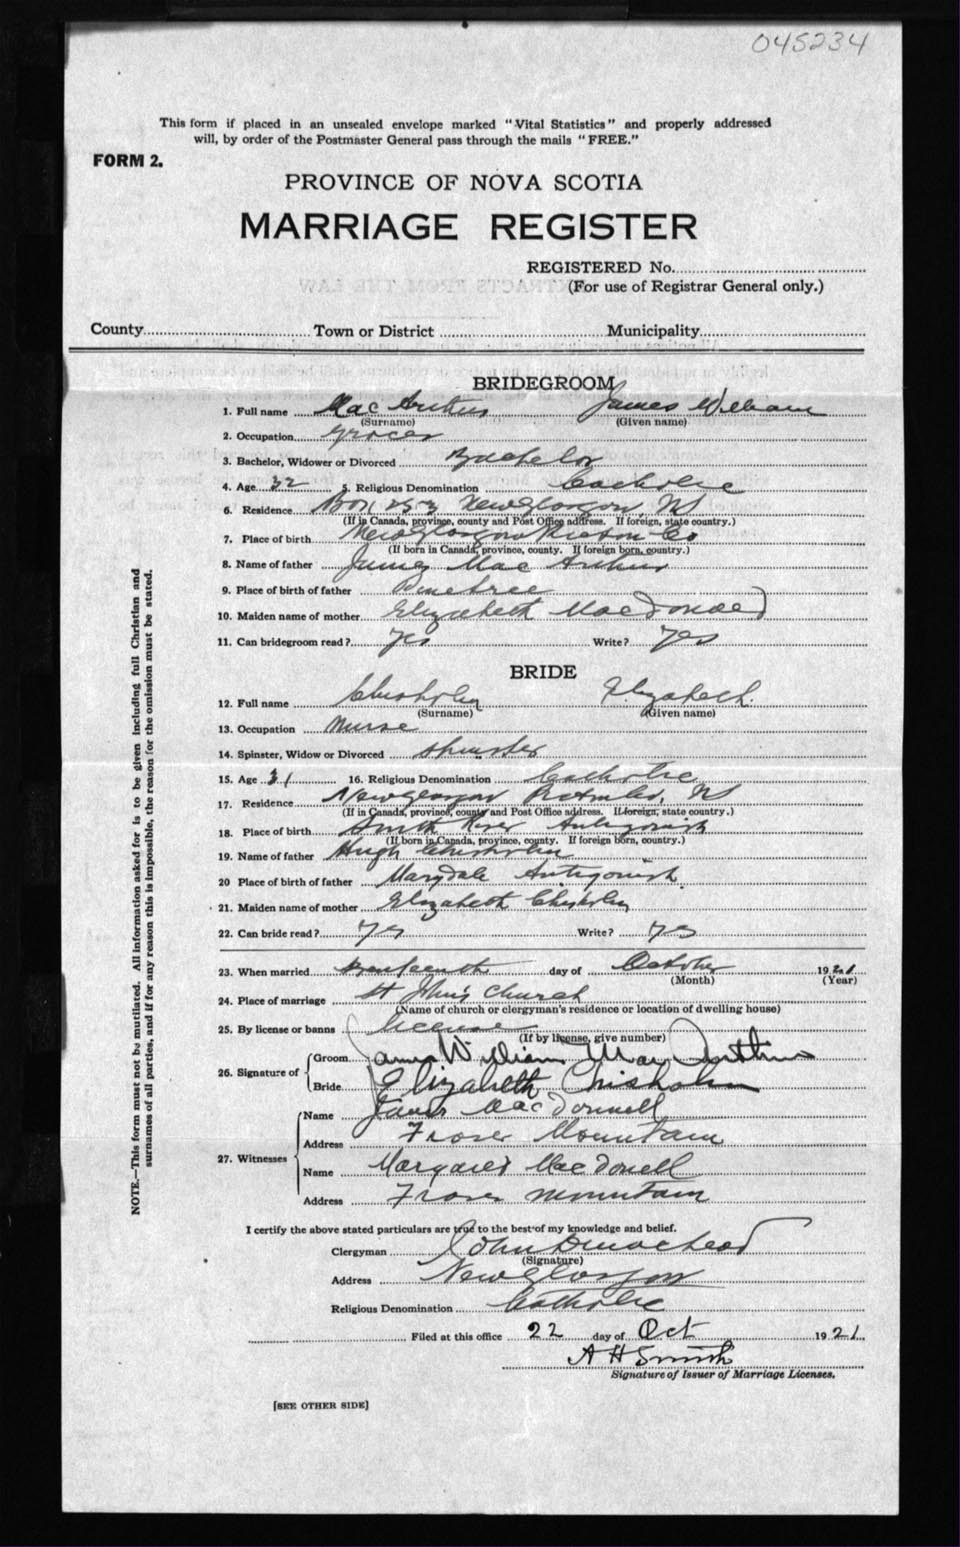 045234
This form if placed in an unsealed envelope marked "Vital Statistics" and properly addressed
will, by order of the Postmaster General pass through the mails "FREE."
FORM 2.
PROVINCE OF NOVA SCOTIA
MARRIAGE REGISTER
REGISTERED No.
(For use of Registrar General only.)
County Town or District Municipality
BRIDEGROOM
1. Full name Mac Arthur James William
(Surname) (Given name)
2. Occupation Grocer
3. Bachelor, Widower or Divorced Bachelor
4. Age 32 5. Religious Denomination Catholic
6. Residence Box New Glasgow, NS
(If in Canada, province, county and Post Office address. If foreign, state country.)
7. Place of birth New Glasgow Pictou Co
(If born in Canada, province, county. If foreign born, country.)
8. Name of father James Mac Arthur
9. Place of birth of father Pinetree
10. Maiden name of mother Elizabeth MacDonald
11. Can bridegroom read? Yes Write? Yes
BRIDE
12. Full name Chisholm Elizabeth
(Surname) (Given name)
13. Occupation Nurse
14. Spinster, Widow or Divorced Spinster
15. Age 31 16. Religious Denomination Catholic
17. Residence New Glasgow Pictou Co, NS
(If in Canada, province, county and Post Office address. If foreign, state country.)
18. Place of birth South River Antigonish
(If born in Canada, province, county. If foreign born, country.)
19. Name of father Hugh Chisholm
20 Place of birth of father Marydale Antigonish
21. Maiden name of mother Elizabeth Chisholm
22. Can bride read? Yes Write? Yes
23. When married day of October 1921
(Month) (Year)
24. Place of marriage St John's Church
(Name of church or clergyman's residence or location of dwelling house)
25. By license or banns license
(If by license, give number)
26. Signature of
Groom James William MacArthur
Bride Elizabeth Chisholm
27. Witnesses
Name MacDonnell
Address Fraser Mountain
Name Margaret MacDonell
Address Fraser Mountain
I certify the above stated particulars are true to the best of my knowledge and belief.
Clergyman John
(Signature)
Address New Glasgow
Religious Denomination Catholic
Filed at this office 22 day of Oct 1921
A H Smith
Signature of Issuer of Marriage Licenses.
[SEE OTHER SIDE]
NOTE.—This form must not be mutilated. All information asked for is to be given including full Christian and
surnames of all parties, and if for any reason this is impossible, the reason for the omission must be stated.